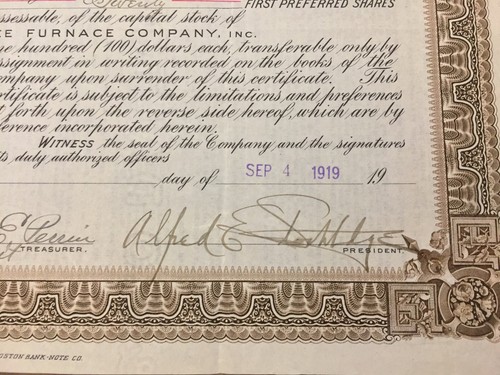 Twenty FIRST PREFERRED SHARES
ssessable, of the capital stock of
EE FURNACE COMPANY, INC.
ne hundred (100) dollars each, transferable only by
ssignment in writing recorded on the books of the
ompany upon surrender of this certificate. This
rtificate is subject to the limitations and preferences
forth upon the reverse side hereof, which are by
ference incorporated herein.
WITNESS the seal of the Company and the signatures
its duly authorized officers
day of SEP 4 1919 19
E Perrin Alfred E
TREASURER. PRESIDENT.
OSTON BANK-NOTE CO.